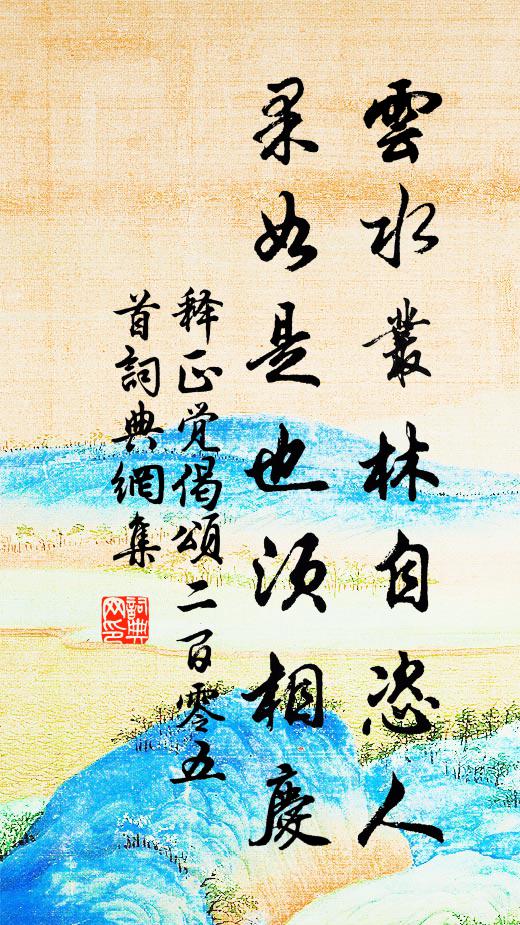 雲水叢林自恣人
果如是也須相慶
释正觉偈頌二百零五
首詞典網集
詞典
网印